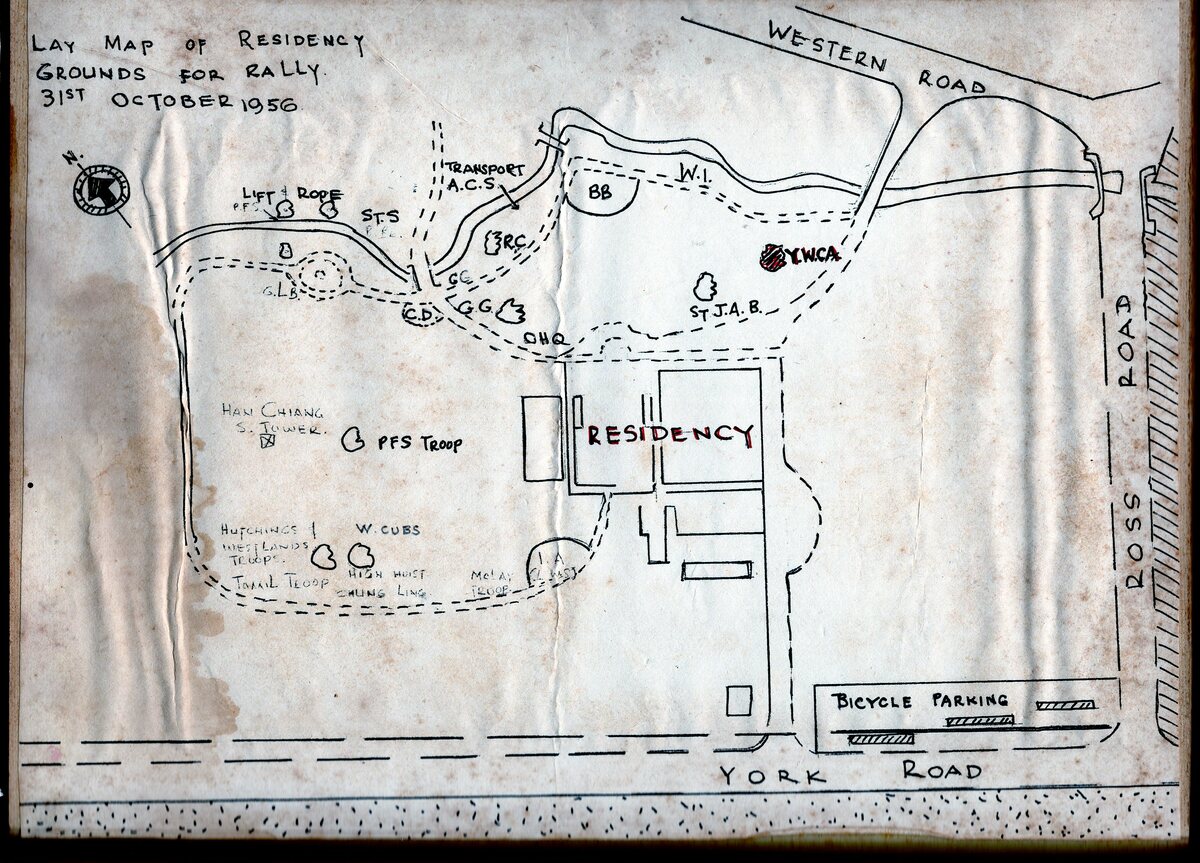 LAY MAP OF RESIDENCY
GROUNDS FOR RALLY.
31ST OCTOBER 1956
WESTERN ROAD
N.
LIFT & ROPE
P.F.S
ST.S
TRANSPORT
A.C.S
BB
W.I.
R.C.
Y.W.CA
G.L.B.
GG
C.D.
G.G.
ST J.A.B.
HQ
ROSS ROAD
HAN CHIANG
S. TOWER.
PFS TROOP
RESIDENCY
HUTCHINGS &
WESTLANDS
TROOPS.
W. CUBS
TAMIL TROOP
HIGH HOIST
CHUNG LING
MALAY
TROOP
BICYCLE PARKING
YORK ROAD